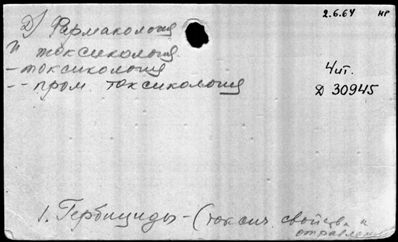 2.6.64 НР
Д) Фармакология
и токсикология
- токсикология
-- пром. токсикология
Чит.
Д 30945
1. Гербициды - (токсич. свойства и
отравление